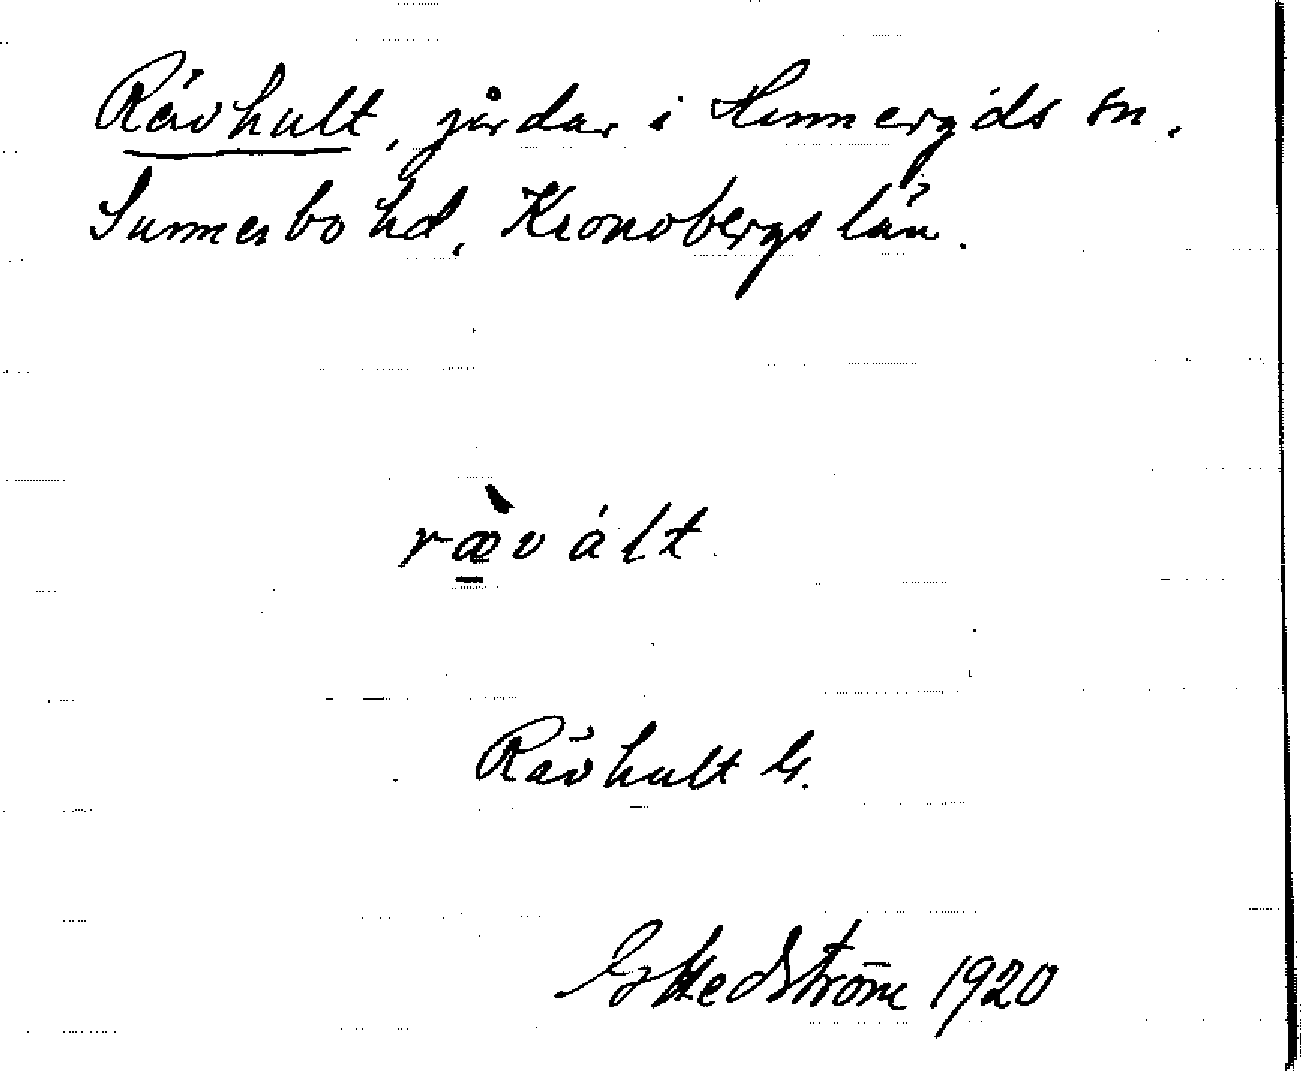 Rävhult, gårdar i Hinneryds sn.
Sunnerbo hd, Kronobergs län.
ræ̠̀vált
Rävhult G.
G Hedström 1920